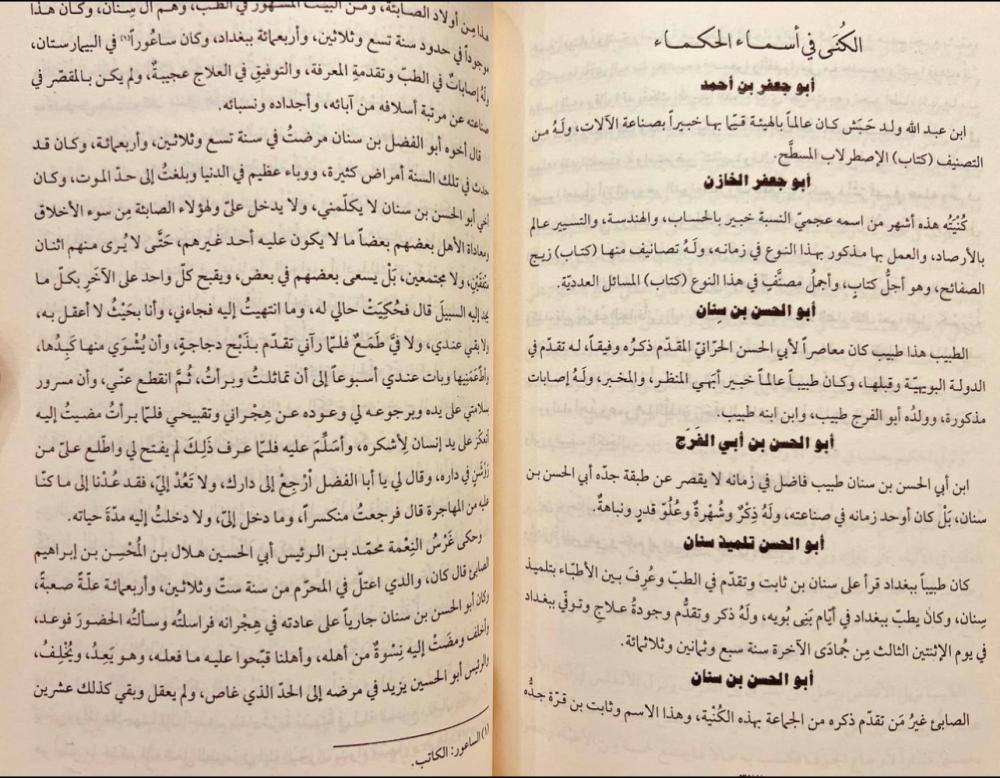 الكُنَى في أسماء الحكماء
أبو جعفر بن أحمد
ابن عبد الله ولد حَبَش كان عالماً بالهيئة قيّما بها خبيراً بصناعة الآلات، ولَهُ من
التصنيف (كتاب) الإصطرلاب المسطَّح.
أبو جعفر الخازن
كُنْيَتُه هذه أشهر من اسمه عجميّ النسبة خبير بالحساب، والهندسة، والتسيير عالم
بالأرصاد، والعمل بها مذكور بهذا النوع في زمانه، ولَهُ تصانيف منها (كتاب) زيج
الصفائح، وهو أجلُّ كتابٍ، وأجملُ مصنَّفٍ في هذا النوع (كتاب) المسائل العدديّة.
أبو الحسن بن سِنان
الطبيب هذا طبيب كان معاصراً لأبي الحسن الحرّانيّ المقدّم ذكرُه وفيقاً، له تقدّم في
الدولة البويهيّة وقبلها، وكان طبيباً عالماً خبير أَبَهي المنظر، والمخبر، ولَهُ إصابات
مذكورة، وولدُه أبو الفرج طبيب، وابن ابنه طبيب.
أبو الحسن بن أبي الفَرَج
ابن أبي الحسن بن سنان طبيب فاضل في زمانه لا يقصر عن طبقة جدّه أبي الحسن بن
سنان، بَلْ كان أوحد زمانه في صناعته، ولَهُ ذِكرٌ وشُهرةٌ وعُلُوّ قدرٍ ونباهةٌ.
أبو الحسن تلميذ سنان
كان طبيباً ببغداد قرأ على سنان بن ثابت وتقدّم في الطبّ وعُرِفَ بين الأطبّاء بتلميذ
سِنان، وكان يطبّ ببغداد في أيّام بَنِى بُويه، ولَهُ ذكر وتقدُّم وجودةُ علاج وتوفّي ببغداد
في يوم الإثنين الثالث مِن جُمادَى الآخرة سنة سبع وثمانين وثلاثمائة.
أبو الحسن بن سنان
الصابئ غيرُ مَن تقدّم ذكره من الجماعة بهذه الكُنْية، وهذا الاسم وثابت بن قرّة جدُّه
هذا مِن أولاد الصابئة، ومن البيت المشهور في الطبّ، وهم آل سِنان، وكان هذا
موجوداً في حدود سنة تسع وثلاثين، وأربعمائة ببغداد، وكان ساعُوراً(١) في البيمارستان،
ولَهُ إصاباتٌ في الطبّ وتقدمةِ المعرفة، والتوفيق في العلاج عجيبةٌ، ولم يكن بالمقصّر في
صناعته عن مرتبة أسلافه من آبائه، وأجداده ونسبائه.
قال أخوه أبو الفضل بن سنان مرضتُ في سنة تسع وثلاثين، وأربعمائة، وكان قد
حدث في تلك السنة أمراض كثيرة، ووباء عظيم في الدنيا وبلغتُ إلى حدّ الموت، وكان
أخي أبو الحسن بن سنان لا يكلّمني، ولا يدخل علىّ ولهؤلاء الصابئة مِن سوء الأخلاق
ومعاداة الأهل بعضهم بعضاً ما لا يكون عليه أحد غيرهم، حَتَّى لا يُرى منهم اثنان
متّفقَيْنِ، ولا مجتمعَينِ، بَلْ يسعى بعضهم في بعض، ويقبح كلّ واحد على الآخَرِ بكلّ ما
يجد إليه السبيلَ قال فحُكِيَتْ حالي له، وما انتهيتُ إليه فجاءني، وأنا بحَيْثُ لا أعقل به،
ولا بقي عندي، ولا فيَّ طَمَعٌ فلمّا رآني تقدّم بذَبْح دجاجةٍ، وأن يُشْوَي منها كَبِدُها،
وأطْعَمَنِيها وبات عندي أسبوعاً إلى أن تماثلتُ وبرأتُ، ثُمَّ انقطع عنّي، وأن مسرور
بسلامتي على يده وبرجوعه لي وعوده عن هِجْراني وتقبيحي فلمّا برأتُ مضيتُ إليه
على يد إنسان لأشكره، وأسلّمَ عليه فلمّا عرف ذَلِكَ لم يفتح لي واطّلع علىّ من
رَوْشَنٍ في داره، وقال لي يا أبا الفضل ارْجِعْ إلى دارك، ولا تَعُدْ إليّ، فقد عُدْنا إلى ما كنّا
عليه من المهاجرة قال فرجعتُ منكسراً، وما دخل إليّ، ولا دخلتُ إليه مدّةَ حياته.
وحكى غَرْسُ النِعْمة محمّد بن الرئيس أبي الحسين هلال بن المُحْسِن بن إبراهيم
الصابئ قال كان، والذي اعتلّ في المحرّم من سنة ستّ وثلاثين، وأربعمائة علّةً صعبةً،
وكان أبو الحسن بن سنان جارياً على عادته في هِجْرانه فراسلتُه وسألتُه الحضورَ فوعد،
وأخلف ومضَتْ إليه نِسْوةٌ من أهله، وأهلنا قبّحوا عليه ما فعله، وهو يَعِدُ، ويُخْلِفُ،
والرئيس أبو الحسين يزيد في مرضه إلى الحدّ الذي غاص، ولم يعقل وبقي كذلك عشرين
(١) الساعور: الكاتب.